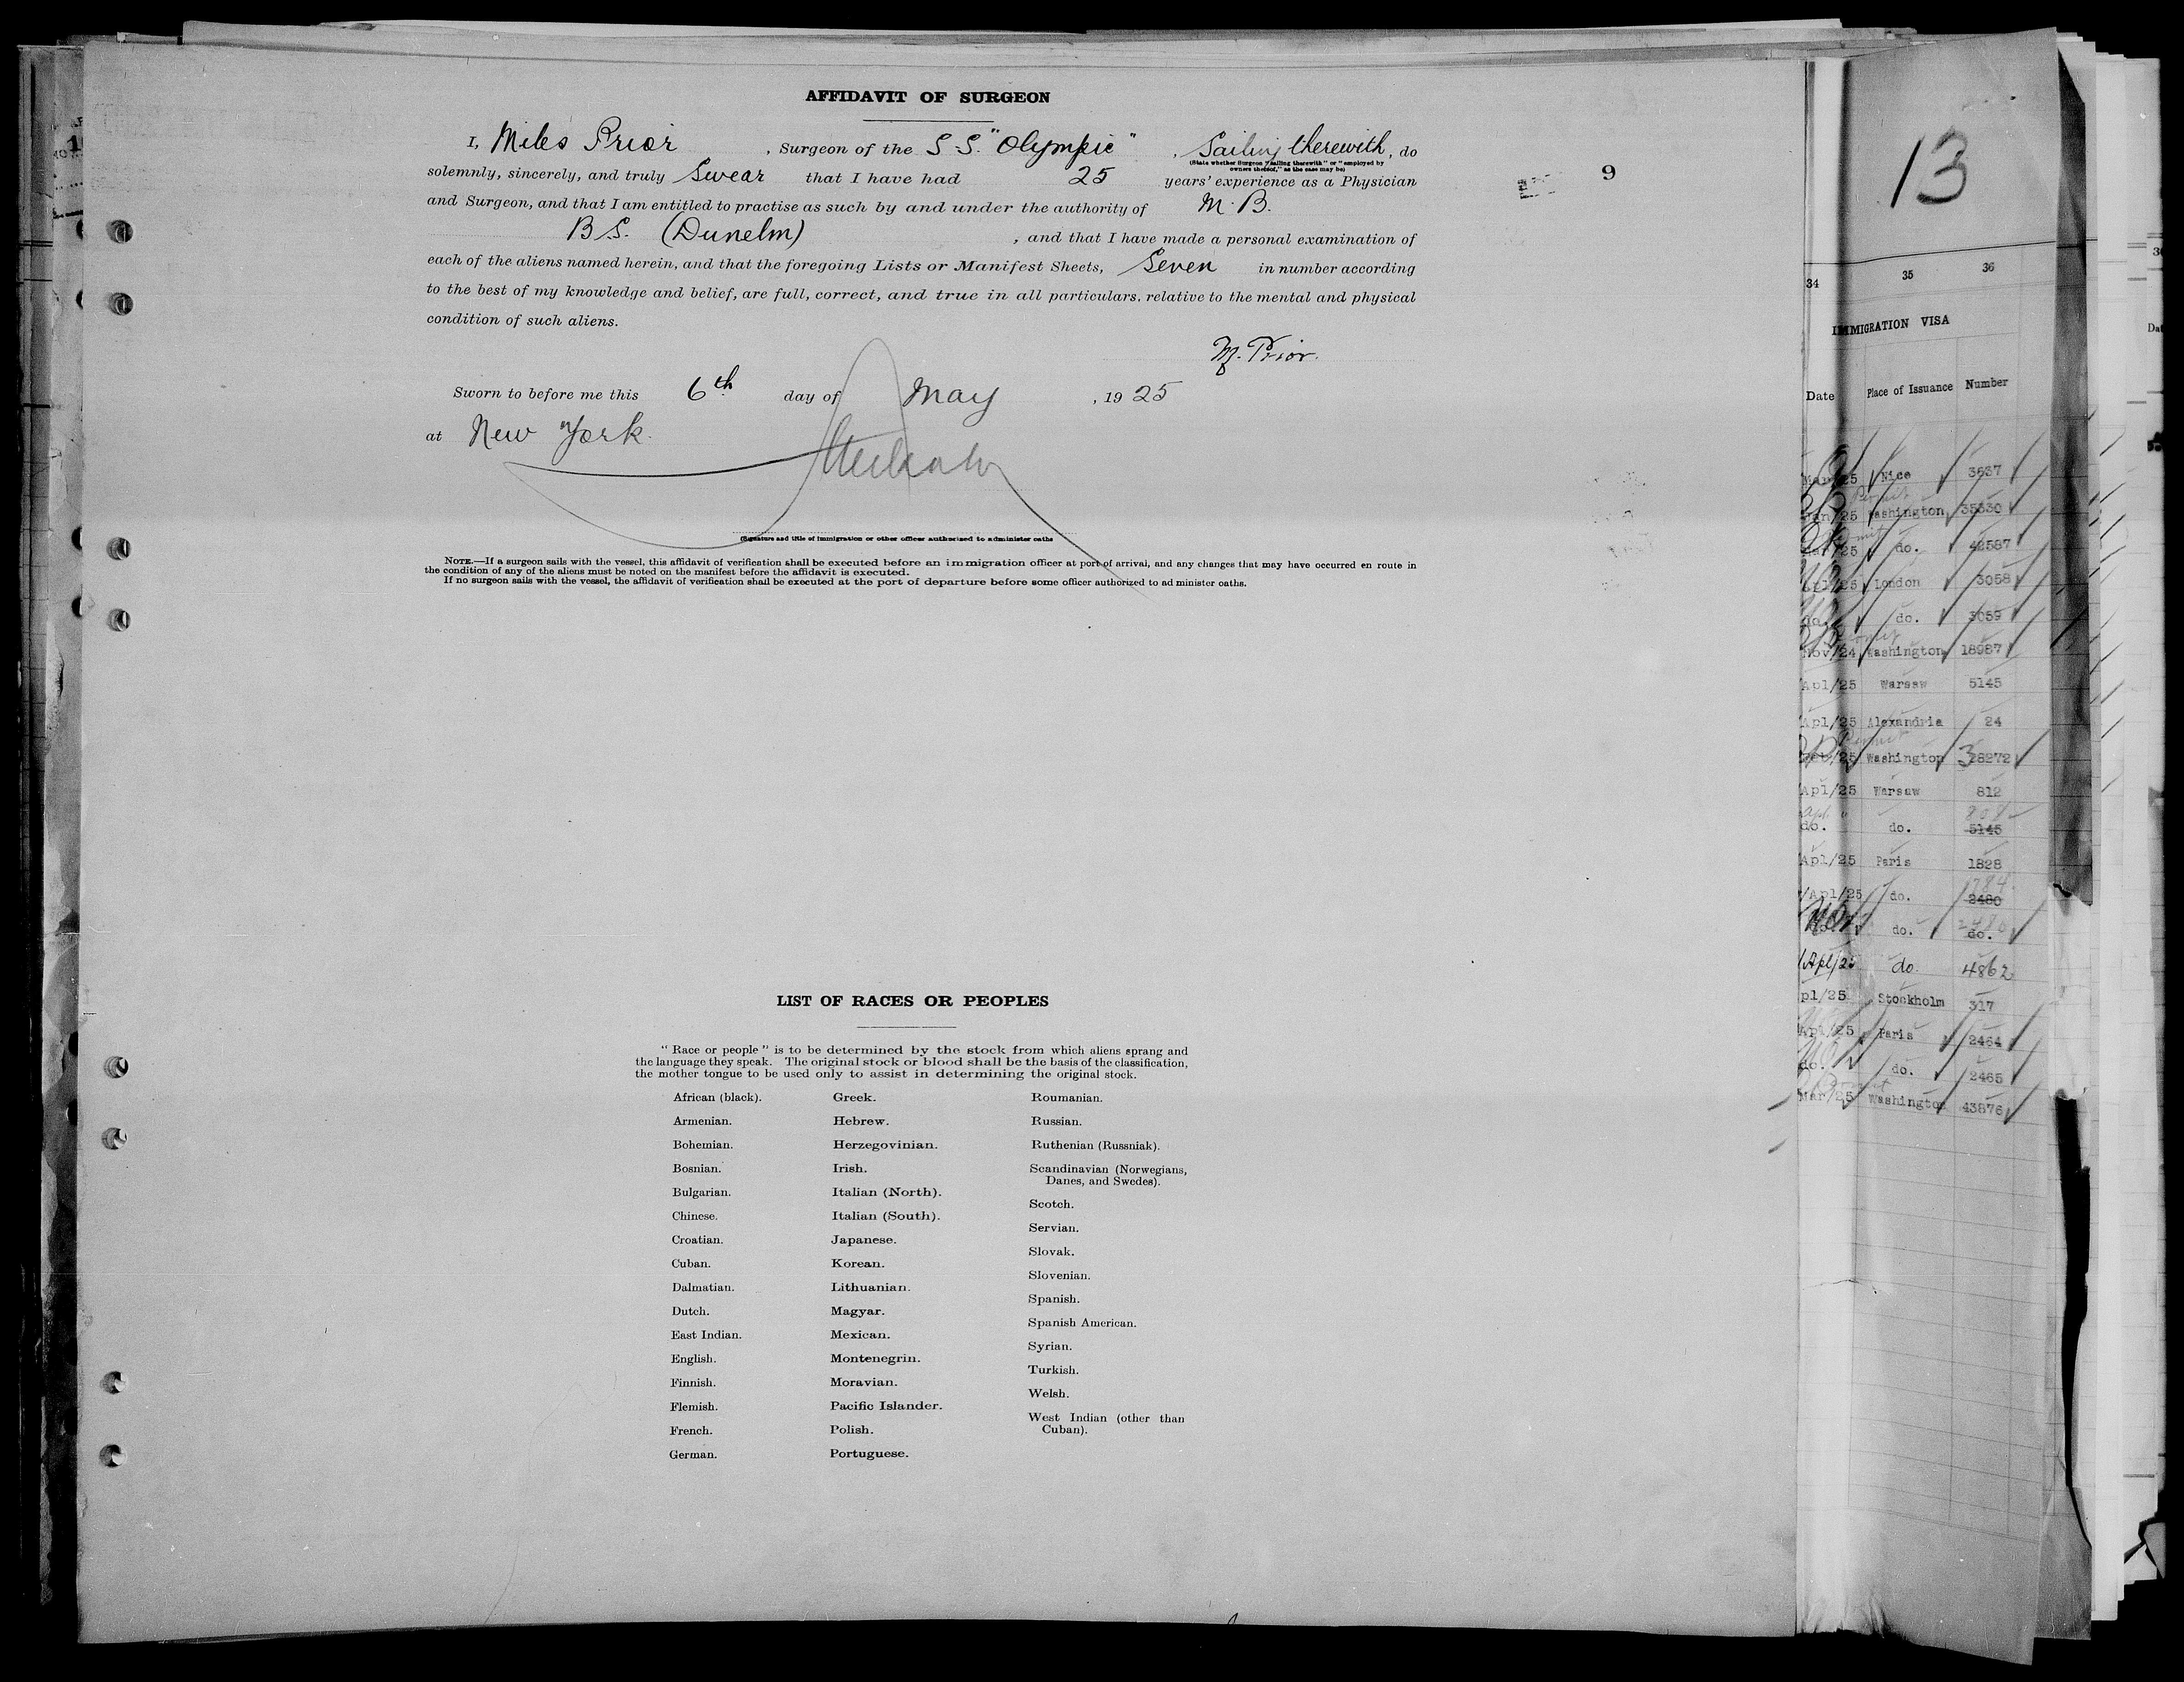 AFFIDAVIT OF SURGEON
I, Miles Prior, Surgeon of the S.S. "Olympic", Sailing therewith, do
(State whether Surgeon "sailing therewith" or "employed by
owners thereof," as the case may be)
solemnly, sincerely, and truly Swear that I have had 25 years' experience as a Physician
and Surgeon, and that I am entitled to practise as such by and under the authority of M.B.
B.S. (Dunelm), and that I have made a personal examination of
each of the aliens named herein, and that the foregoing Lists or Manifest Sheets, Seven in number according
to the best of my knowledge and belief, are full, correct, and true in all particulars, relative to the mental and physical
condition of such aliens.
M. Prior.
Sworn to before me this 6th day of May, 1925
at New York.
(Signature and title of immigration or other officer authorized to administer oaths
NOTE.—If a surgeon sails with the vessel, this affidavit of verification shall be executed before an immigration officer at port of arrival, and any changes that may have occurred en route in
the condition of any of the aliens must be noted on the manifest before the affidavit is executed.
If no surgeon sails with the vessel, the affidavit of verification shall be executed at the port of departure before some officer authorized to administer oaths.
9
LIST OF RACES OR PEOPLES
"Race or people" is to be determined by the stock from which aliens sprang and
the language they speak. The original stock or blood shall be the basis of the classification,
the mother tongue to be used only to assist in determining the original stock.
African (black).
Armenian.
Bohemian.
Bosnian.
Bulgarian.
Chinese.
Croatian.
Cuban.
Dalmatian.
Dutch.
East Indian.
English.
Finnish.
Flemish.
French.
German.
Greek.
Hebrew.
Herzegovinian.
Irish.
Italian (North).
Italian (South).
Japanese.
Korean.
Lithuanian.
Magyar.
Mexican.
Montenegrin.
Moravian.
Pacific Islander.
Polish.
Portuguese.
Roumanian.
Russian.
Ruthenian (Russniak).
Scandinavian (Norwegians,
Danes, and Swedes).
Scotch.
Servian.
Slovak.
Slovenian.
Spanish.
Spanish American.
Syrian.
Turkish.
Welsh.
West Indian (other than
Cuban).
13
34 35 36
IMMIGRATION VISA
Date Place of Issuance Number
Mar/25 Nice 3637
Jan/25 Washington 35330
Mar/25 do. 42587
Apl/25 London 3058
do. do. 3059
Nov/24 Washington 18987
Apl/25 Warsaw 5145
Apl/25 Alexandria 24
Feb/25 Washington 328272
Apl/25 Warsaw 812
do. do. 5145
Apl/25 Paris 1828
/Apl/25 do. 2480
do. do.
/Apl/25 do 4862
pl/25 Stockholm 317
Apl/25 Paris 2464
do. do. 2465
Mar/25 Washington 43876